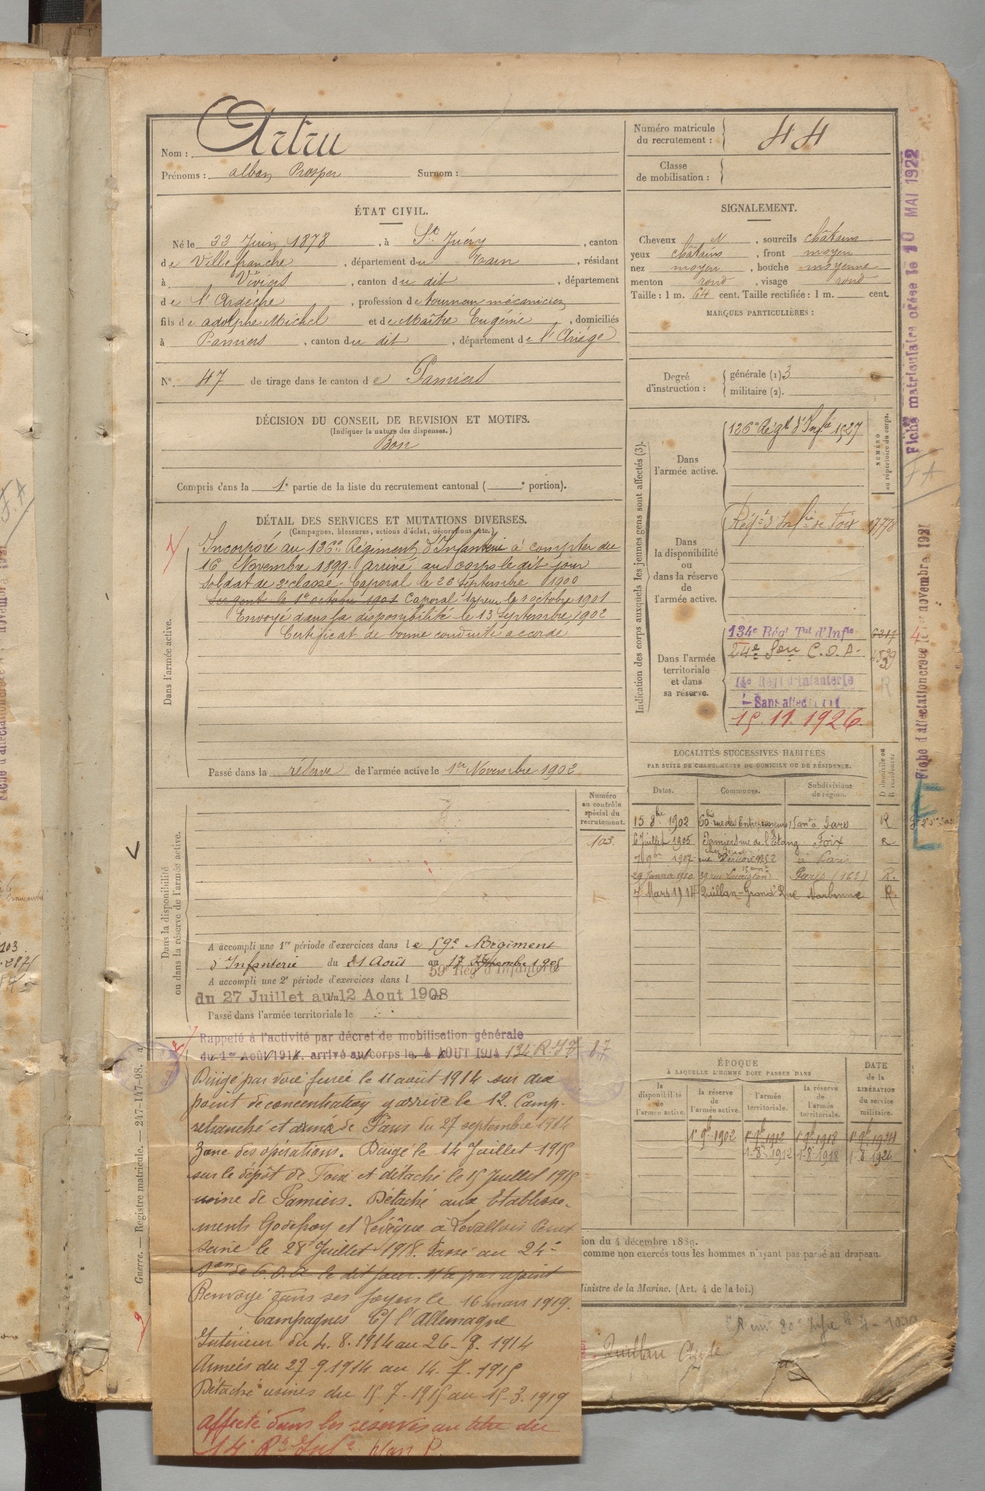 Nom : Artru
Prénoms : alban Prosper Surnom :
Numéro matricule du recrutement : 44
Classe de mobilisation :
ÉTAT CIVIL.
Né le 22 Juin 1878, à St Juéry, canton
de Villefranche, département du Tarn, résidant
à Viviers, canton du dit, département
de l'Ardèche, profession de tourneur mécanicien
fils de adolphe Michel et de Maître Eugénie, domiciliés
à Pamiers, canton du dit, département de l'Ariège
N° 47 de tirage dans le canton de Pamiers
SIGNALEMENT.
Cheveux ch N, sourcils châtains
yeux châtains, front moyen
nez moyen, bouche moyenne
menton rond, visage rond
Taille : 1 m. 64 cent. Taille rectifiée : 1 m. cent.
MARQUES PARTICULIÈRES :
Degré d'instruction : générale (1) 3
militaire (2).
DÉCISION DU CONSEIL DE REVISION ET MOTIFS.
(Indiquer la nature des dispenses.)
Bon
Compris dans la 1e partie de la liste du recrutement cantonal ( e portion).
DÉTAIL DES SERVICES ET MUTATIONS DIVERSES.
(Campagnes, blessures, actions d'éclat, décorations, etc.)
Dans l'armée active.
Incorporé au 126e Régiment d'Infanterie à compter du
16 Novembre 1899 arrivé au corps le dit jour
soldat de 2e classe. Caporal le 20 septembre 1900
Sergent le 1er octobre 1901 Caporal sapeur le 1 octobre 1901
Envoyé dans la disponibilité le 13 septembre 1902
Certificat de bonne conduite accordé
Passé dans la réserve de l'armée active le 1er Novembre 1902
Indication des corps auxquels les jeunes gens sont affectés (3).
NUMÉRO au répertoire du corps.
Dans l'armée active.
126e Régt d'Infie 1527
Dans la disponibilité ou dans la réserve de l'armée active.
Régt d'Infie de Foix 1778
Dans l'armée territoriale et dans sa réserve.
134e Rég Tal d'Infie
24e Son C.O.A.
14e Régt d'Infanterie
Sans affectation
15.11.1926
R
Fiche matriculaire créée le 10 MAI 1922
LOCALITÉS SUCCESSIVES HABITÉES
PAR SUITE DE CHANGEMENTS DE DOMICILE OU DE RÉSIDENCE.
Dates. Communes. Subdivisions de région. D. domicile ou R. résidence.
15 8bre 1902 R
6 Juillet 1905 Pamiers rue de l'Etang Foix R
7 9bre 1907 Paris
29 Janvier 1910 Paris R.
4 Mars 1914 Quillan Grand Rue Narbonne R.
Dans la disponibilité ou dans la réserve de l'armée active.
Numéro au contrôle spécial du recrutement.
103
A accompli une 1re période d'exercices dans le 59e Régiment
d'Infanterie du 21 Août au 17 Septembre 1905
A accompli une 2e période d'exercices dans l 59e Rég d'Infanterie
du 27 Juillet au 12 Aout 1908
Passé dans l'armée territoriale le
Rappelé à l'activité par décret de mobilisation générale
du 1er Août 1914. arrivé au corps le 4 AOUT 1914 134 R.I.T
Dirigé par voie ferrée le 11 août 1914 sur un
point de concentration y arrive le 12. Camp
retranché et armée de Paris du 27 septembre 1914
Zone des opérations. Dirigé le 14 Juillet 1915
sur le dépôt de Foix et détaché le 15 Juillet 1915
usine de Pamiers. Détaché aux Etablisse-
ments Godefroy et Lévêque à Levallois Perret
seine le 28 Juillet 1918. Passé au 24e
Son de C.O.A le dit jour. N'a pas rejoint
Renvoyé dans ses foyers le 16 mars 1919.
Campagnes C/ l'Allemagne
Intérieur du 4.8.1914 au 26-9.1914
Armées du 27-9.1914 au 14.7.1915
Détaché usines du 15.7.1915 au 15.3.1919
Affecté dans les réserves au titre du
14e Rt Infie plan P.
ÉPOQUE
À LAQUELLE L'HOMME DOIT PASSER DANS
la disponibilité de l'armée active.
la réserve de l'armée active.
l'armée territoriale.
la réserve de l'armée territoriale.
DATE de la LIBÉRATION du service militaire.
1er 9bre 1902 1er 9bre 1912 1er 9bre 1918
1.8.1912 1.8.1918 1.8.1924
ion du 4 décembre 1889.
comme non exercés tous les hommes n'ayant pas passé au drapeau.
Ministre de la Marine. (Art. 4 de la loi.)
Quillan Aude
Guerre. — Registre matricule. — 247-147-98.